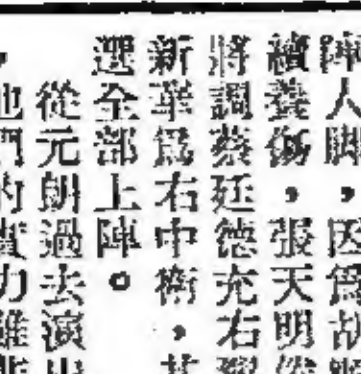 陣人脚，因爲胡
續養傷，張天明
將調蔡廷德充右
新華爲右中衞，其
選全部上陣。
從元朗過去演出
他們的實力雖